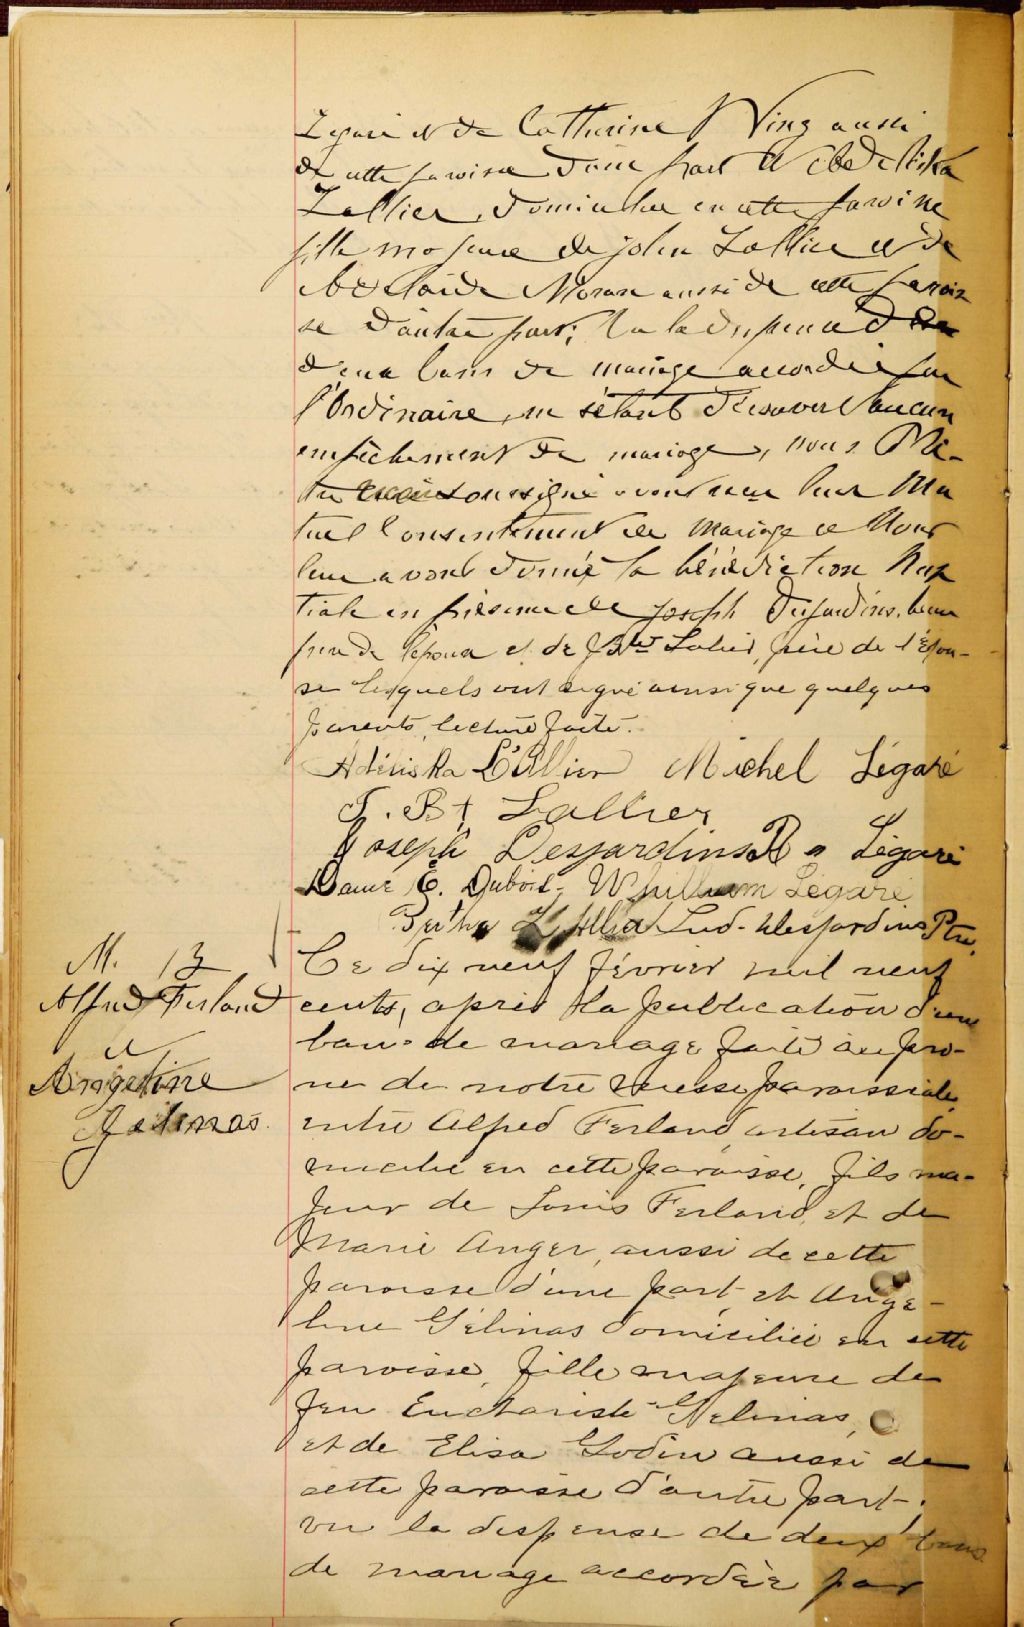 Légaré et de Catherine King aussi
de cette paroisse d'une part et Adeliska
Lallier, domiciliée en cette paroisse
fille majeure de John Lallier et de
Adelaide Moran aussi de cette parois
se d'autre part; Vu la dispense de
deux bans de mariage accordée par
l'Ordinaire, ne s'étant découvert aucun
empêchement de mariage, nous Prê-
tre soussigné avons reçu leur Mu
tuel Consentement de mariage et Nous
leur avons donné la bénédiction Nup
tiale en présence de Joseph Desjardins, beau
frère de l'époux et de J. Bte Lalier, frère de l'épou-
se lesquels ont signé ainsi que quelques
parents, lecture faite.
Adéliska L'Allier Michel Légaré
J. Bt Lallier
Joseph Desjardins Légaré
Dame E. Dubois. Whilliam Légaré
Bertha L'Allier Lud. Desjardins Ptre.
M. 13
Alfred Ferland
et
Angeline
Gelinas.
Ce dix neuf février mil neuf
cents, après la publication d'un
ban de mariage faite au prô-
ne de notre messe paroissiale
entre Alfred Ferland artisan do-
micilié en cette paroisse, fils ma-
jeur de Louis Ferland, et de
Marie Anger, aussi de cette
paroisse d'une part et Ange-
line Gélinas domiciliée en cette
paroisse, fille majeure de
feu Euchariste Gelinas,
et de Elisa Godin aussi de
cette paroisse d'autre part;
vu la dispense de deux bans
de mariage accordée par